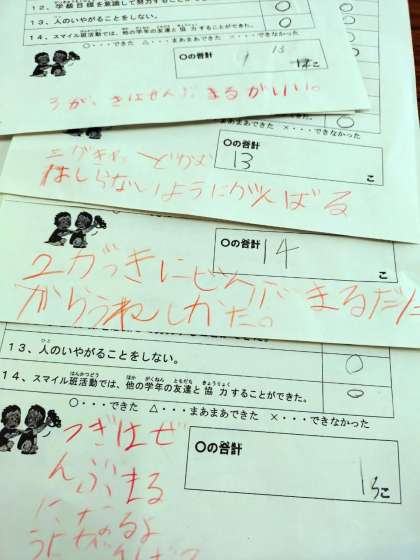 12、学級目標を意識して努力することができた。
13、人のいやがることをしない。
14、スマイル班活動では、他の学年の友達と協力することができた。
○・・・できた △・・・まあまあできた ×・・・できなかった
○の合計
13
こ
3がっきはぜんぶまるがいい。
○の合計
13
こ
はしらないようにがんばる
○の合計
14
2がっきにぜんぶまるだた
からうれしかた。
13、人のいやがることをしない。
14、スマイル班活動では、他の学年の友達と協力することができた。
○・・・できた △・・・まあまあできた ×・・・できなかった
○の合計
こ
つぎはぜ
んぶまる